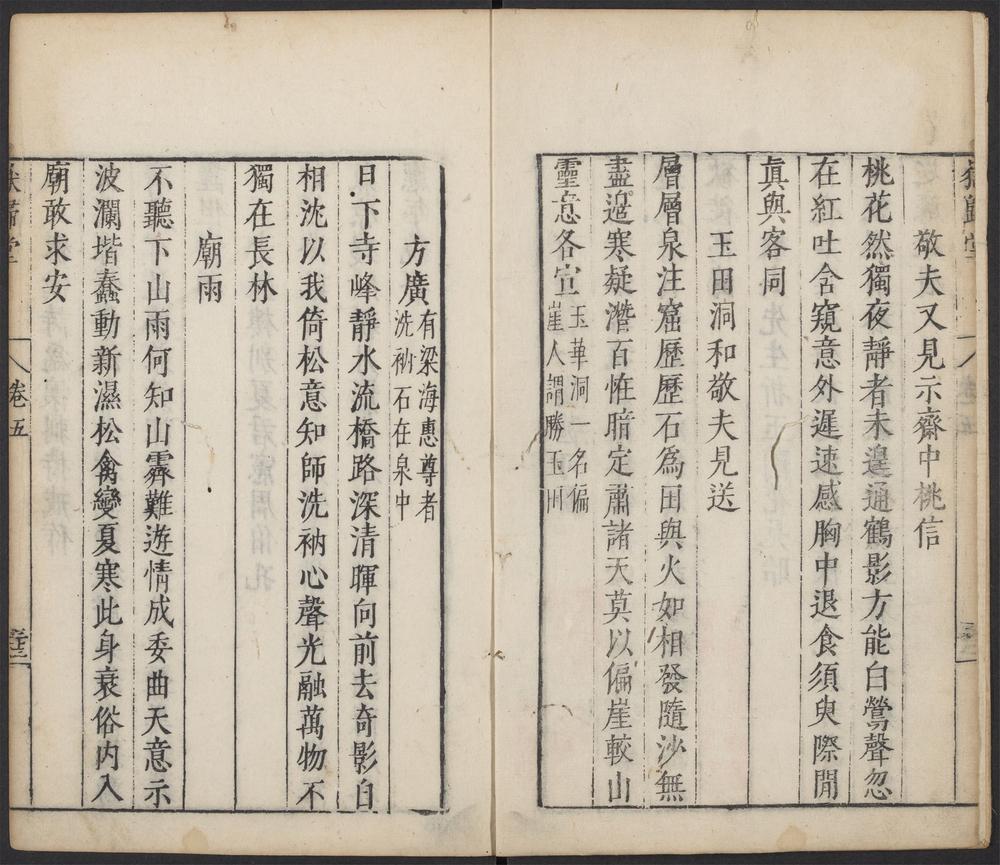 敬夫又見示齋中桃信
桃花然獨夜靜者未遑通鶴影方能白鶯聲忽
在紅吐含窺意外遲速感胸中退食須臾際閒
真與客同
玉田洞和敬夫見送
層層泉注窟歷歷石為田與火如相發隨沙無
盡邅寒疑潛百怪暗定肅諸天莫以偏崖較山
靈意各宣玉華洞一名偏
崖人謂勝玉田
方廣有梁海惠尊者
洗衲石在泉中
日下寺峰靜水流橋路深清暉向前去奇影自
相沈以我倚松意知師洗衲心聲光融萬物不
獨在長林
廟雨
不聽下山雨何知山霽難遊情成委曲天意示
波瀾堦蠢動新濕松禽變夏寒此身衰俗內入
廟敢求安
卷五